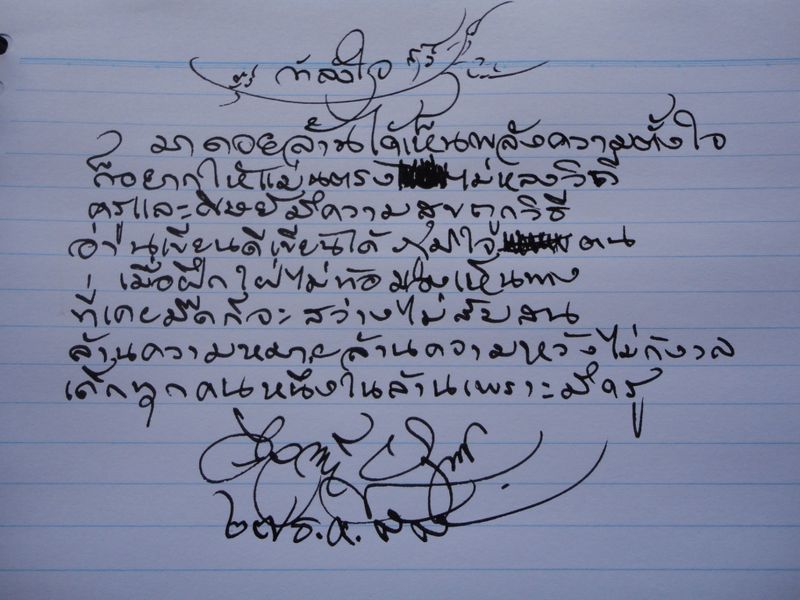 กำลังใจ
มาดอยล้านได้เห็นพลังความตั้งใจ
ก็อยากให้แม่นตรง ไม่หลงวิถี
ครูและศิษย์มีความสุขถูกวิธี
อ่านเขียนดีเขียนได้ ใจ ตน
เมื่อฝึกใฝ่ไม่ท้อ เห็นทาง
ที่เคยมืดก็จะสว่างไม่สับสน
ล้านความหมายล้านความหวังไม่กังวล
เด็กทุกคนหนึ่งในล้านเพราะมีครู
๒๗ ธ.ค. ๕๕